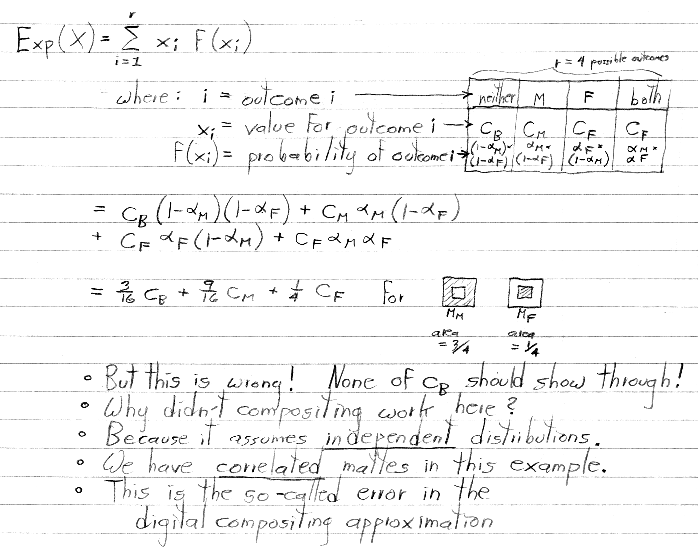 Exp(X) = Σ xᵢ F(xᵢ)
r
i=1
r = 4 possible outcomes
where: i = outcome i → neither M F both
xᵢ = value for outcome i → C_B C_M C_F C_F
F(xᵢ) = probability of outcome i → (1-α_M)* (1-α_F) α_M* (1-α_F) α_F* (1-α_M) α_M* α_F
= C_B (1-α_M)(1-α_F) + C_M α_M (1-α_F)
+ C_F α_F (1-α_M) + C_F α_M α_F
= 3/16 C_B + 9/16 C_M + 1/4 C_F for
M_M M_F
area = 3/4 area = 1/4
• But this is wrong! None of C_B should show through!
• Why didn't compositing work here?
• Because it assumes independent distributions.
• We have correlated mattes in this example.
• This is the so-called error in the
digital compositing approximation